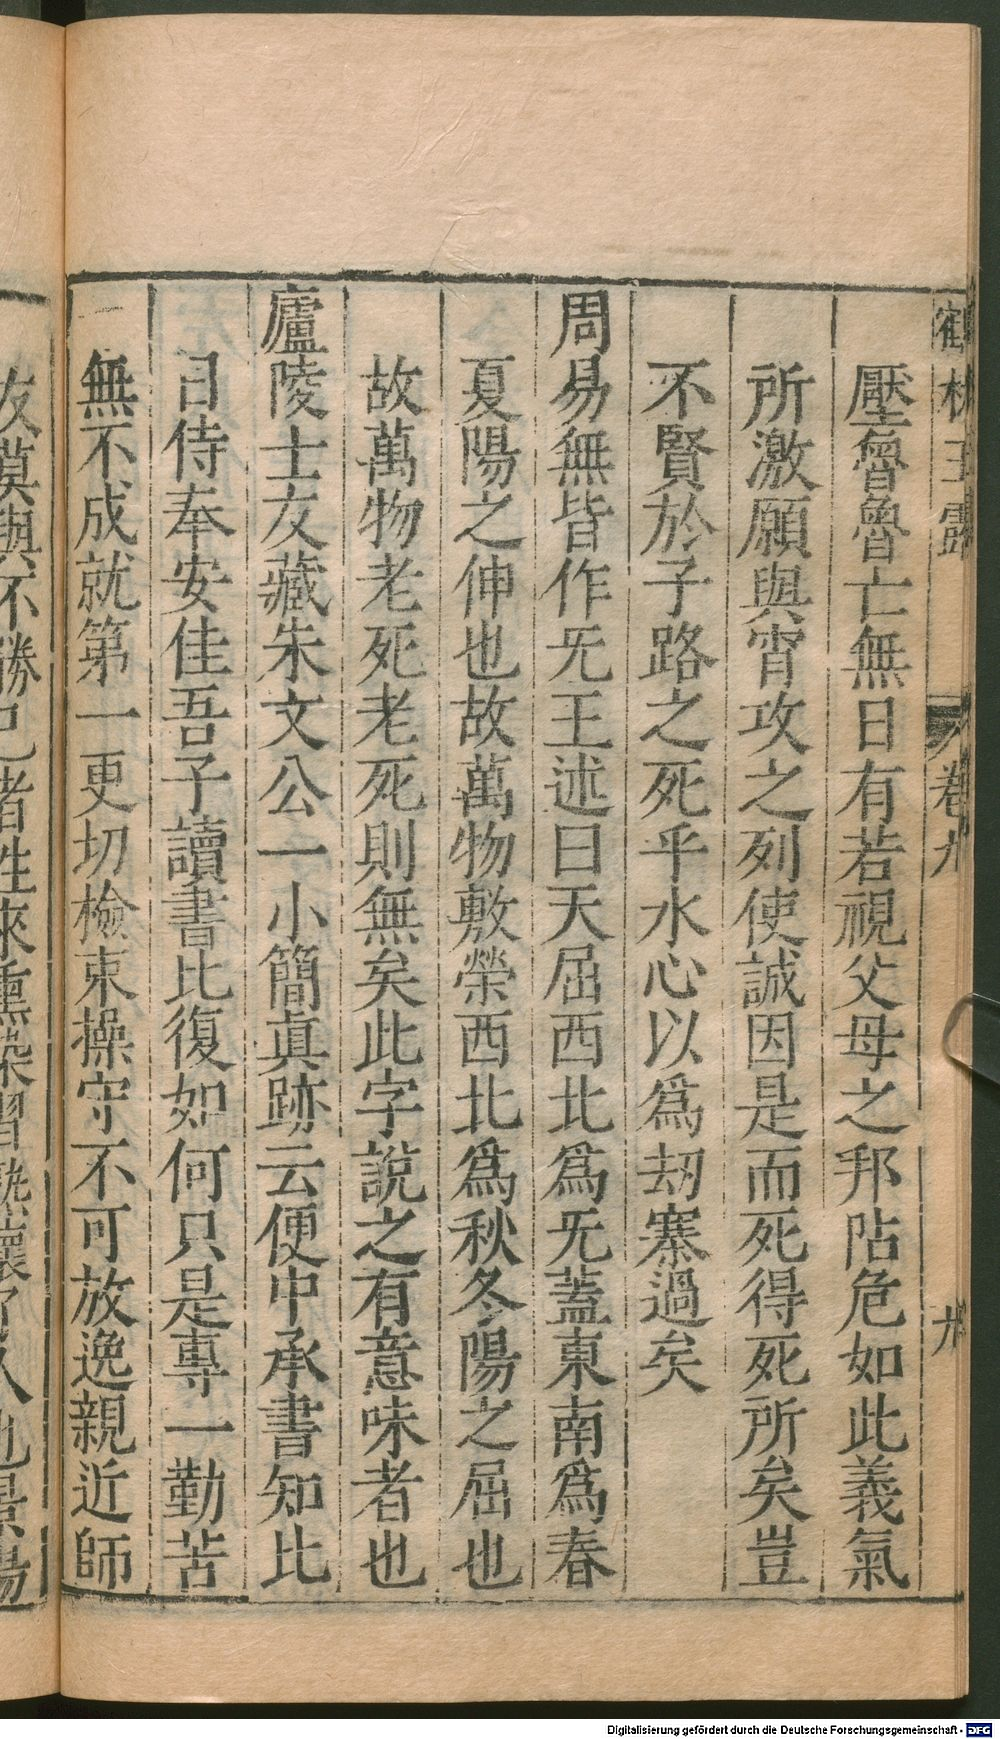 鶴林玉露
卷九
九
壓魯魯亡無日有若視父母之邦阽危如此義氣
所激願與宵攻之列使誠因是而死得死所矣豈
不賢於子路之死乎水心以爲刼寨過矣
周易無皆作无王述曰天屈西北爲无蓋東南爲春
夏陽之伸也故萬物敷榮西北爲秋冬陽之屈也
故萬物老死老死則無矣此字說之有意味者也
廬陵士友藏朱文公一小簡眞跡云便中承書知比
日侍奉安佳吾子讀書比復如何只是專一勤苦
無不成就第一更切檢束操守不可放逸親近師
友莫與不勝己者往來熏染習熟壞了人也景陽
Digitalisierung gefördert durch die Deutsche Forschungsgemeinschaft - DFG